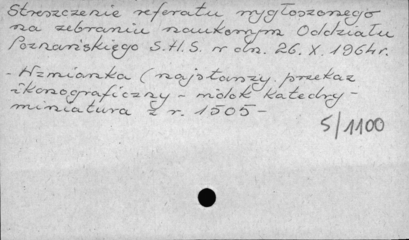 Streszczenie referatu wygłoszonego
na zebraniu naukowym Oddziału
Poznańskiego S.H.S. w dn. 26. X. 1964 r.
- Wzmianka (najstarszy przekaz
ikonograficzny - widok katedry -
miniatura z r. 1505 -
5/1100